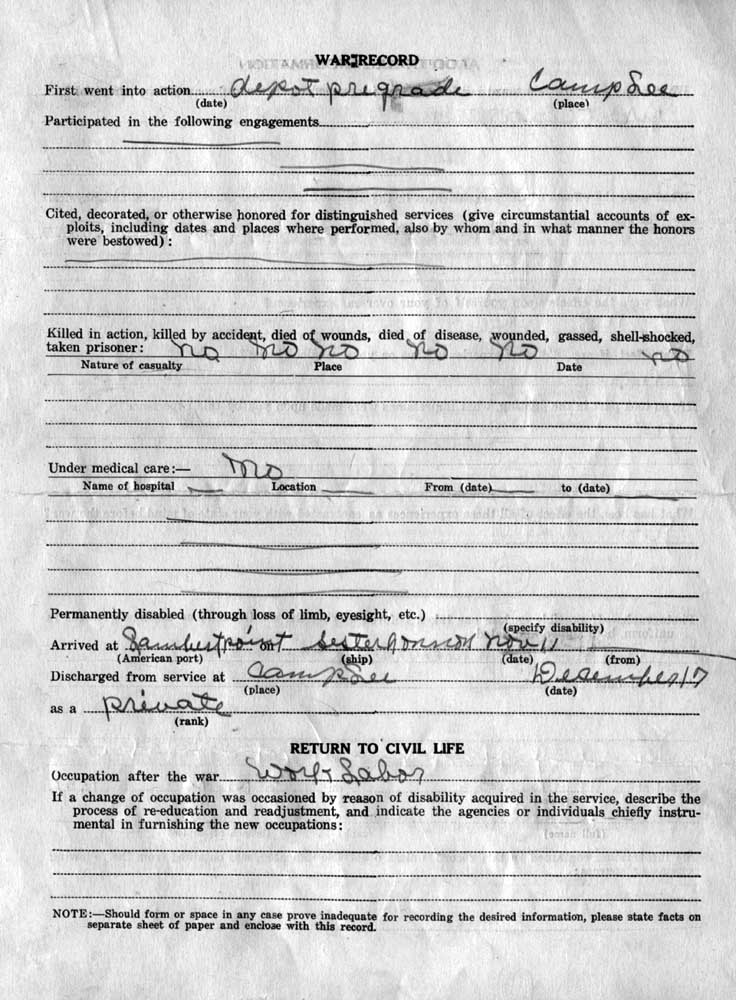 WAR RECORD
First went into action depot prigrade Camp Lee
(date) (place)
Participated in the following engagements
Cited, decorated, or otherwise honored for distinguished services (give circumstantial accounts of ex-
ploits, including dates and places where performed, also by whom and in what manner the honors
were bestowed) :
Killed in action, killed by accident, died of wounds, died of disease, wounded, gassed, shell-shocked,
taken prisoner: no no no no no no
Nature of casualty Place Date
Under medical care:— no
Name of hospital Location From (date) to (date)
Permanently disabled (through loss of limb, eyesight, etc.)
(specify disability)
Arrived at Lambertpoint Nov 11
(American port) (ship) (date) (from)
Discharged from service at Camp Lee 17
(place) (date)
as a private
(rank)
RETURN TO CIVIL LIFE
Occupation after the war Labor
If a change of occupation was occasioned by reason of disability acquired in the service, describe the
process of re-education and readjustment, and indicate the agencies or individuals chiefly instru-
mental in furnishing the new occupations:
NOTE:—Should form or space in any case prove inadequate for recording the desired information, please state facts on
separate sheet of paper and enclose with this record.